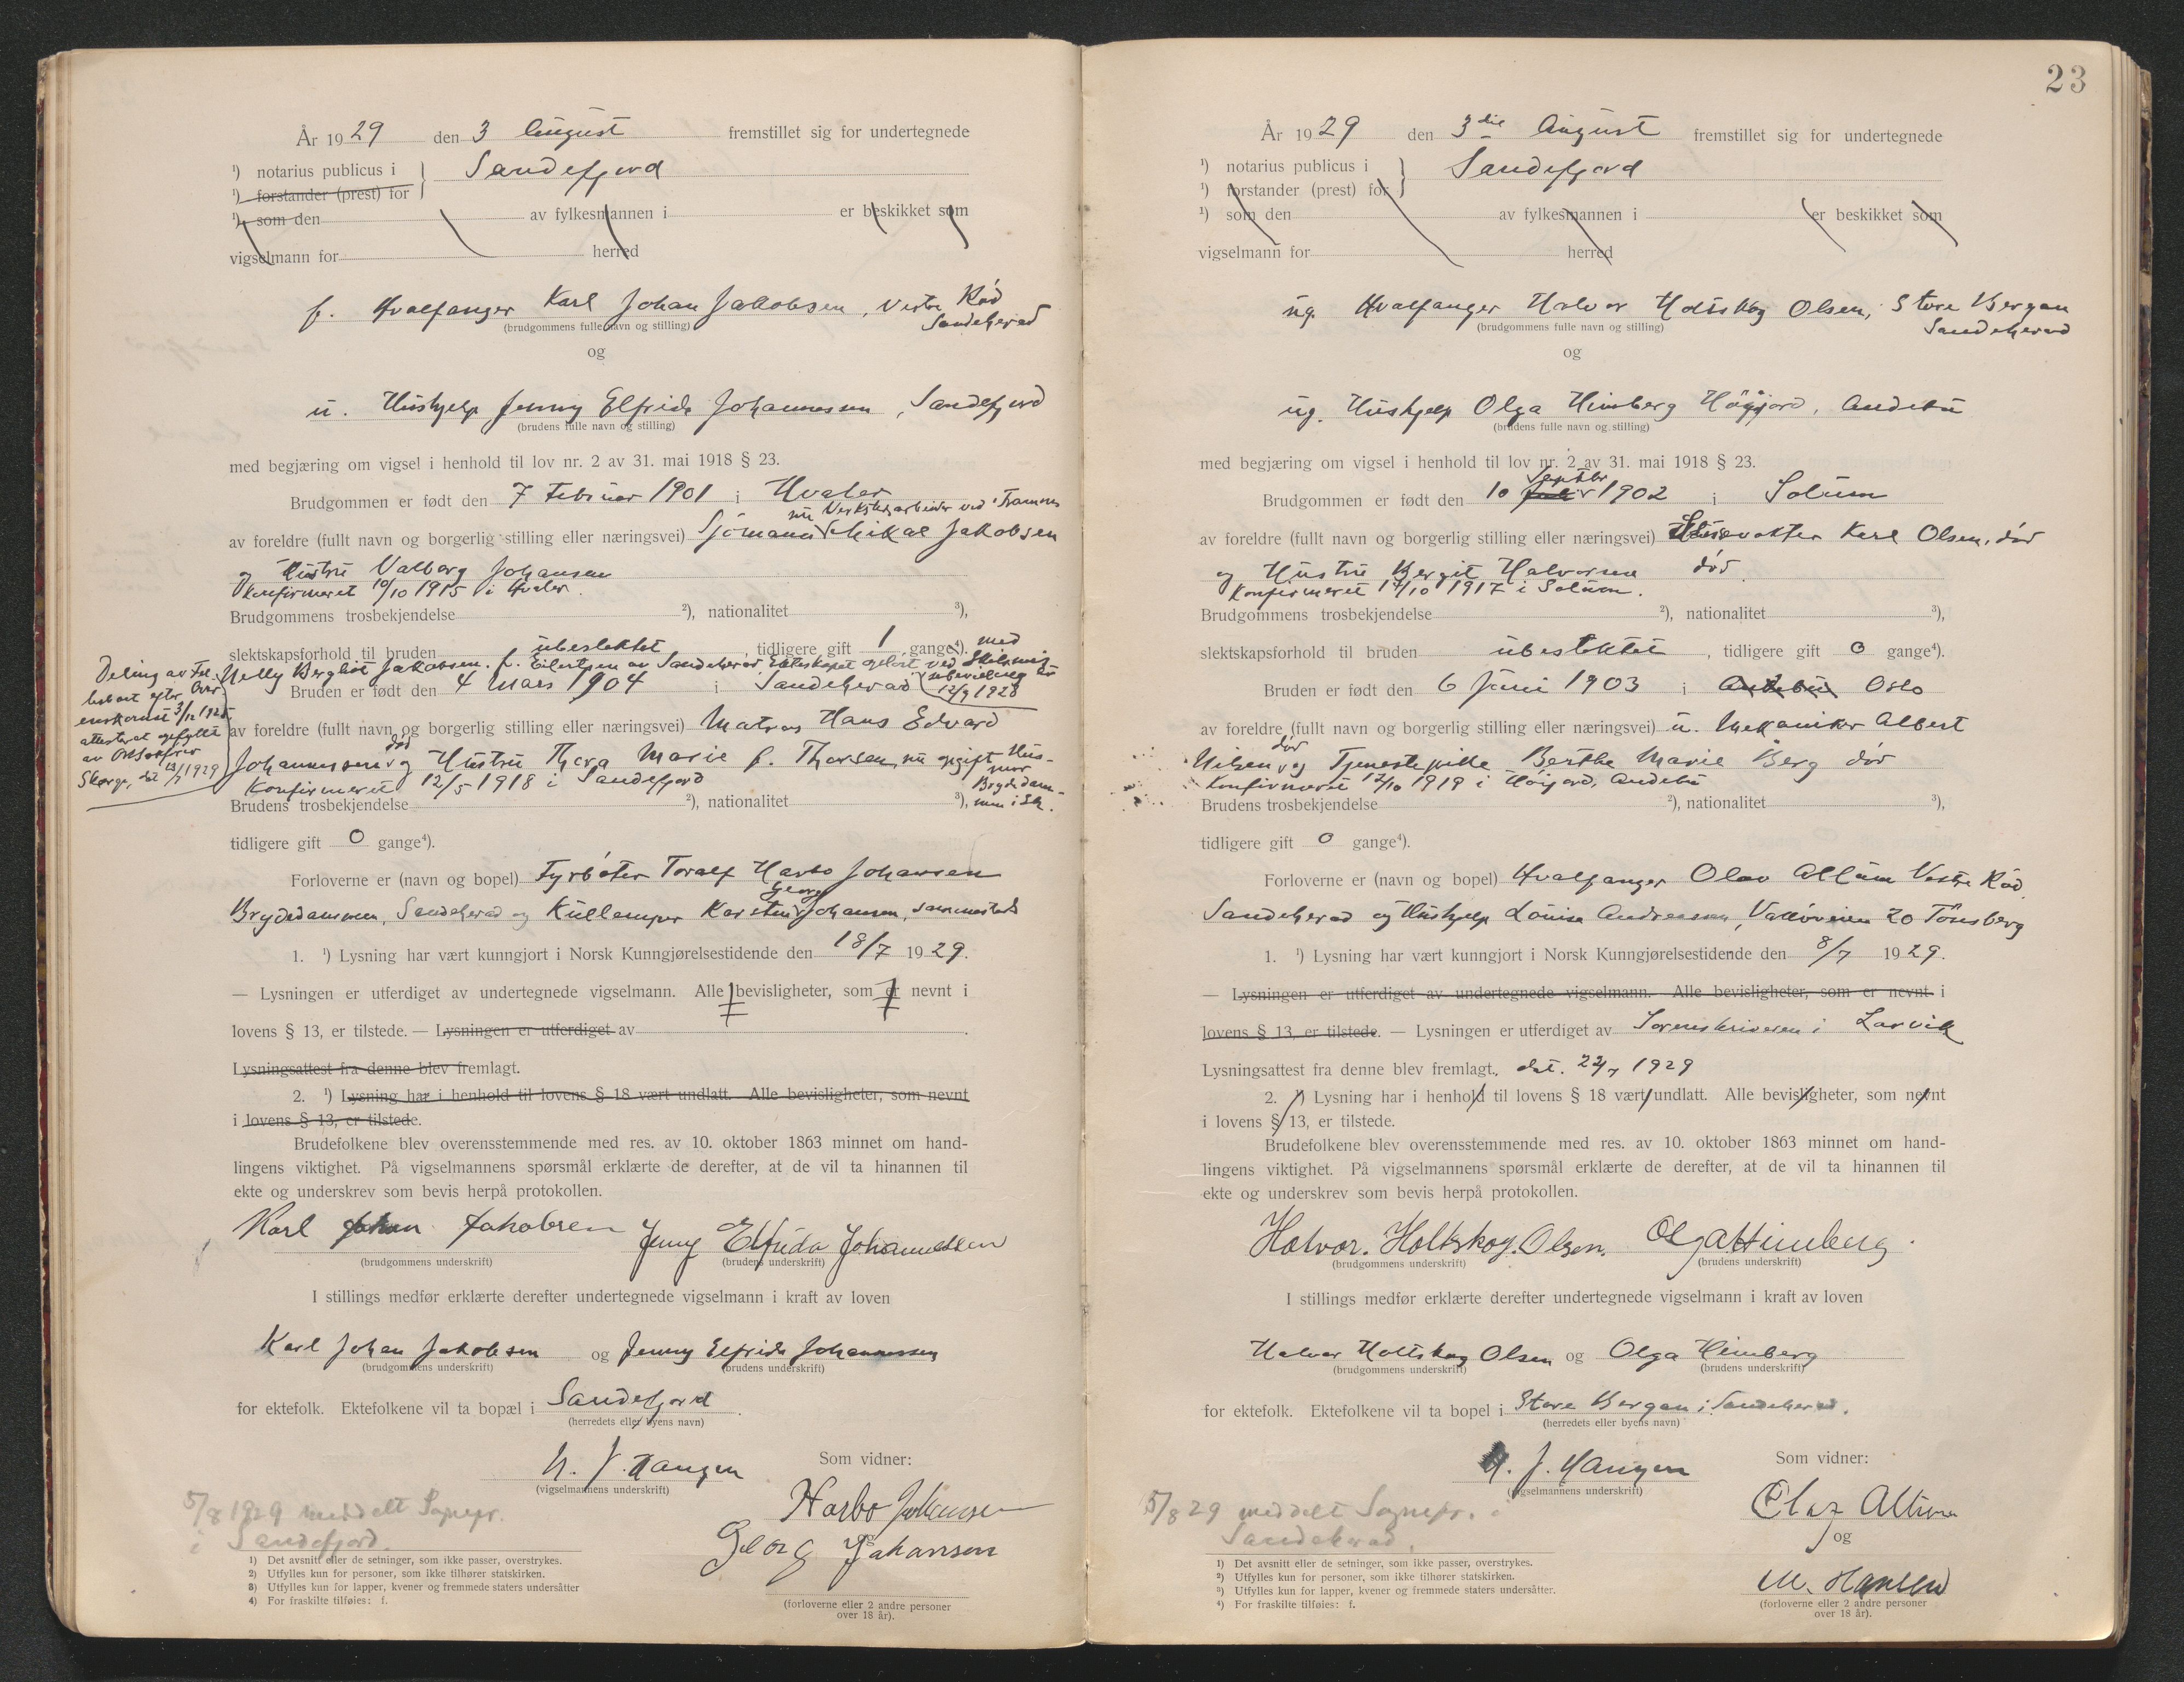 År 1929 den 3 August fremstillet sig for undertegnede
¹) notarius publicus i } Sandefjord
¹) forstander (prest) for
¹) som den av fylkesmannen i er beskikket som
vigselmann for herred
f. Hvalfanger Karl Johan Jakobsen, Vestre Rød
Sandeherad
(brudgommens fulle navn og stilling)
og
u. Hushjelp Jenny Elfrida Johannessen, Sandefjord
(brudens fulle navn og stilling)
med begjæring om vigsel i henhold til lov nr. 2 av 31. mai 1918 § 23.
Brudgommen er født den 7 Februar 1901 i Hvaler
nu Verkstedarbeider ved Framnes
av foreldre (fullt navn og borgerlig stilling eller næringsvei) Sjömann Mikal Jakobsen
og Hustru Valborg Johansen
Konfirmeret 10/10 1915 i Hvaler.
Brudgommens trosbekjendelse ²), nationalitet ³),
slektskapsforhold til bruden ubeslektet, tidligere gift 1 gange⁴). med
Nelly Bergliot Jakobsen f. Eilertsen av Sandeherad Ekteskapet opløst ved Skilsmis
sebevilling av
12/9 1928
Bruden er født den 4 Mars 1904 i Sandeherad
Deling av Fel-
lesboet efter Over
enskomst 3/12 1925
attesteret opfyllt
av
Skorge, dat 13/7 1929
av foreldre (fullt navn og borgerlig stilling eller næringsvei) Matros Hans Edvard
Johannessen død og Hustru Thora Marie f. Thorsen, nu opgift Hus-
mor
Konfirmeret 12/5 1918 i Sandefjord
Brydedam-
Brudens trosbekjendelse ²), nationalitet ³), men i Sh.
tidligere gift 0 gange⁴).
Forloverne er (navn og bopel) Fyrbøter Toralf Harbo Johansen
Brydedammen, Sandeherad og Kullemper Karsten Georg Johansen, sammesteds
1. ¹) Lysning har vært kunngjort i Norsk Kunngjørelsestidende den 18/7 1929.
— Lysningen er utferdiget av undertegnede vigselmann. Alle bevisligheter, som er nevnt i
lovens § 13, er tilstede. — Lysningen er utferdiget av
Lysningsattest fra denne blev fremlagt.
2. ¹) Lysning har i henhold til lovens § 18 vært undlatt. Alle bevisligheter, som nevnt
i lovens § 13, er tilstede.
Brudefolkene blev overensstemmende med res. av 10. oktober 1863 minnet om hand-
lingens viktighet. På vigselmannens spørsmål erklærte de derefter, at de vil ta hinannen til
ekte og underskrev som bevis herpå protokollen.
Karl Johan Jakobsen Jenny Elfrida Johannessen
(brudgommens underskrift) (brudens underskrift)
I stillings medfør erklærte derefter undertegnede vigselmann i kraft av loven
Karl Johan Jakobsen og Jenny Elfrida Johannessen
(brudgommens underskrift) (brudens underskrift)
for ektefolk. Ektefolkene vil ta bopæl i Sandefjord
(herredets eller byens navn)
H. J. Haugen
(vigselmannens underskrift)
Som vidner:
Harbo Johansen
Georg Johansen
og
(forloverne eller 2 andre personer
over 18 år).
5/8 1929 meddelt Sognepr.
i Sandefjord.
1) Det avsnitt eller de setninger, som ikke passer, overstrykes.
2) Utfylles kun for personer, som ikke tilhører statskirken.
3) Utfylles kun for lapper, kvener og fremmede staters undersåtter
4) For fraskilte tilføies: f.
23
År 1929 den 3die August fremstillet sig for undertegnede
¹) notarius publicus i } Sandefjord
¹) forstander (prest) for
¹) som den av fylkesmannen i er beskikket som
vigselmann for herred
ug. Hvalfanger Halvor Holtskog Olsen, Store Bergan
Sandeherad
(brudgommens fulle navn og stilling)
og
ug. Hushjelp Olga Himberg Högjord, Andebu
(brudens fulle navn og stilling)
med begjæring om vigsel i henhold til lov nr. 2 av 31. mai 1918 § 23.
Septbr
Brudgommen er født den 10 Juli 1902 i Solum
av foreldre (fullt navn og borgerlig stilling eller næringsvei) Slusevokter Karl Olsen, død
og Hustru Bergit Halvorsen død
Konfirmeret 17/10 1917 i Solum.
Brudgommens trosbekjendelse ²), nationalitet ³),
slektskapsforhold til bruden ubeslektet, tidligere gift 0 gange⁴).
Bruden er født den 6 Juni 1903 i Andebu Oslo
av foreldre (fullt navn og borgerlig stilling eller næringsvei) u. Mekaniker Albert
Nilsen død og Tjenestepike Berthe Marie Berg død
Konfirmeret 12/10 1919 i Höijord, Andebu
Brudens trosbekjendelse ²), nationalitet ³),
tidligere gift 0 gange⁴).
Forloverne er (navn og bopel) Hvalfanger Olav Allum Vestre Rød
Sandeherad og Hushjelp Louise Andreassen, Valløveien 20 Tönsberg
1. ¹) Lysning har vært kunngjort i Norsk Kunngjørelsestidende den 8/7 1929.
— Lysningen er utferdiget av undertegnede vigselmann. Alle bevisligheter, som er nevnt i
lovens § 13, er tilstede. — Lysningen er utferdiget av Sorenskriveren i Larvik
Lysningsattest fra denne blev fremlagt. dat. 22/7 1929
2. ¹) Lysning har i henhold til lovens § 18 vært undlatt. Alle bevisligheter, som nevnt
i lovens § 13, er tilstede.
Brudefolkene blev overensstemmende med res. av 10. oktober 1863 minnet om hand-
lingens viktighet. På vigselmannens spørsmål erklærte de derefter, at de vil ta hinannen til
ekte og underskrev som bevis herpå protokollen.
Halvor. Holtskog. Olsen. Olga Himberg.
(brudgommens underskrift) (brudens underskrift)
I stillings medfør erklærte derefter undertegnede vigselmann i kraft av loven
Halvor Holtskog Olsen og Olga Himberg
(brudgommens underskrift) (brudens underskrift)
for ektefolk. Ektefolkene vil ta bopel i Store Bergan i Sandeherad.
(herredets eller byens navn)
H. J. Haugen
(vigselmannens underskrift)
Som vidner:
Olaf Allum
og
M. Hansen
(forloverne eller 2 andre personer
over 18 år).
5/8 29 meddelt Sognepr. i
Sandeherad.
1) Det avsnitt eller de setninger, som ikke passer, overstrykes.
2) Utfylles kun for personer, som ikke tilhører statskirken.
3) Utfylles kun for lapper, kvener og fremmede staters undersåtter.
4) For fraskilte tilføies: f.